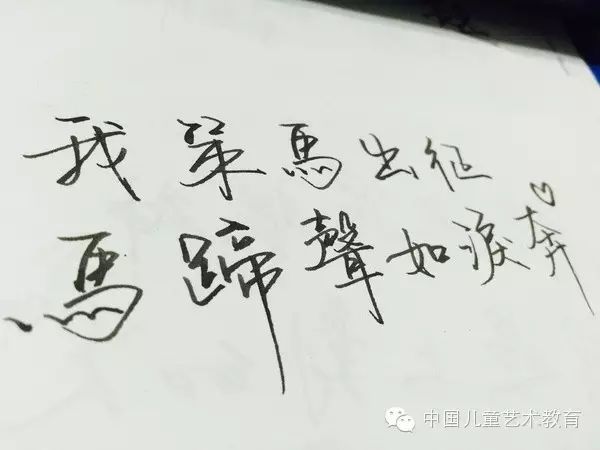 我策馬出征
馬蹄聲如淚奔
中国儿童艺术教育